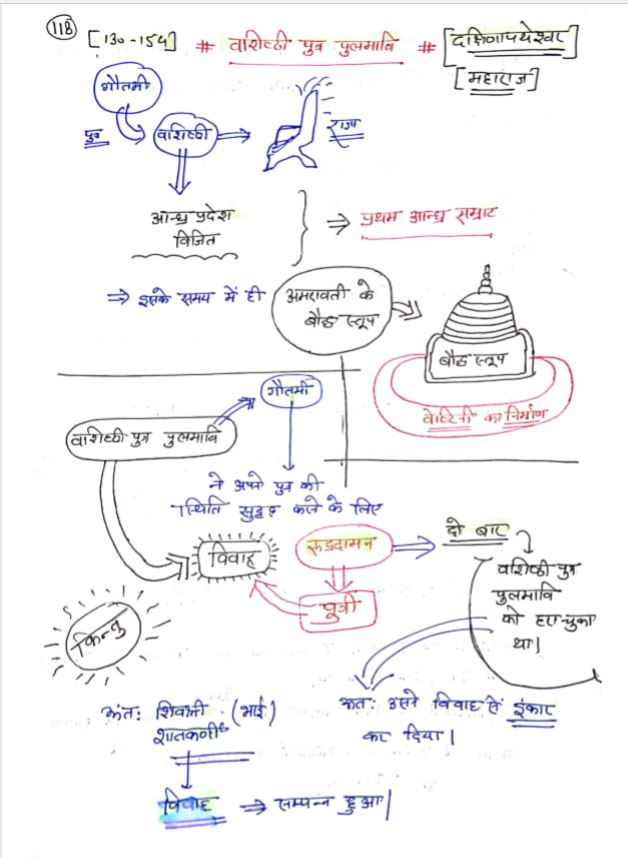 118
[130-154] # वाशिष्ठी पुत्र पुलमावि # [दक्षिणापथेश्वर]
[महाराज]
गौतमी
पुत्र
वाशिष्ठी
राजा
आन्ध्र प्रदेश
विजित
⇒ प्रथम आन्ध्र सम्राट
⇒ इसके समय में ही
अमरावती के
बौद्ध स्तूप
बौद्ध स्तूप
वेष्टिनी का निर्माण
गौतमी
वाशिष्ठी पुत्र पुलमावि
ने अपने पुत्र की
स्थिति सुदृढ़ करने के लिए
विवाह
रुद्रदामन
पुत्री
दो बार
वशिष्ठी पुत्र
पुलमावि
को हरा चुका
था।
किन्तु
अतः उसने विवाह से इंकार
कर दिया।
अंत: शिवश्री (भाई)
शातकर्णी
विवाह ⇒ सम्पन्न हुआ।